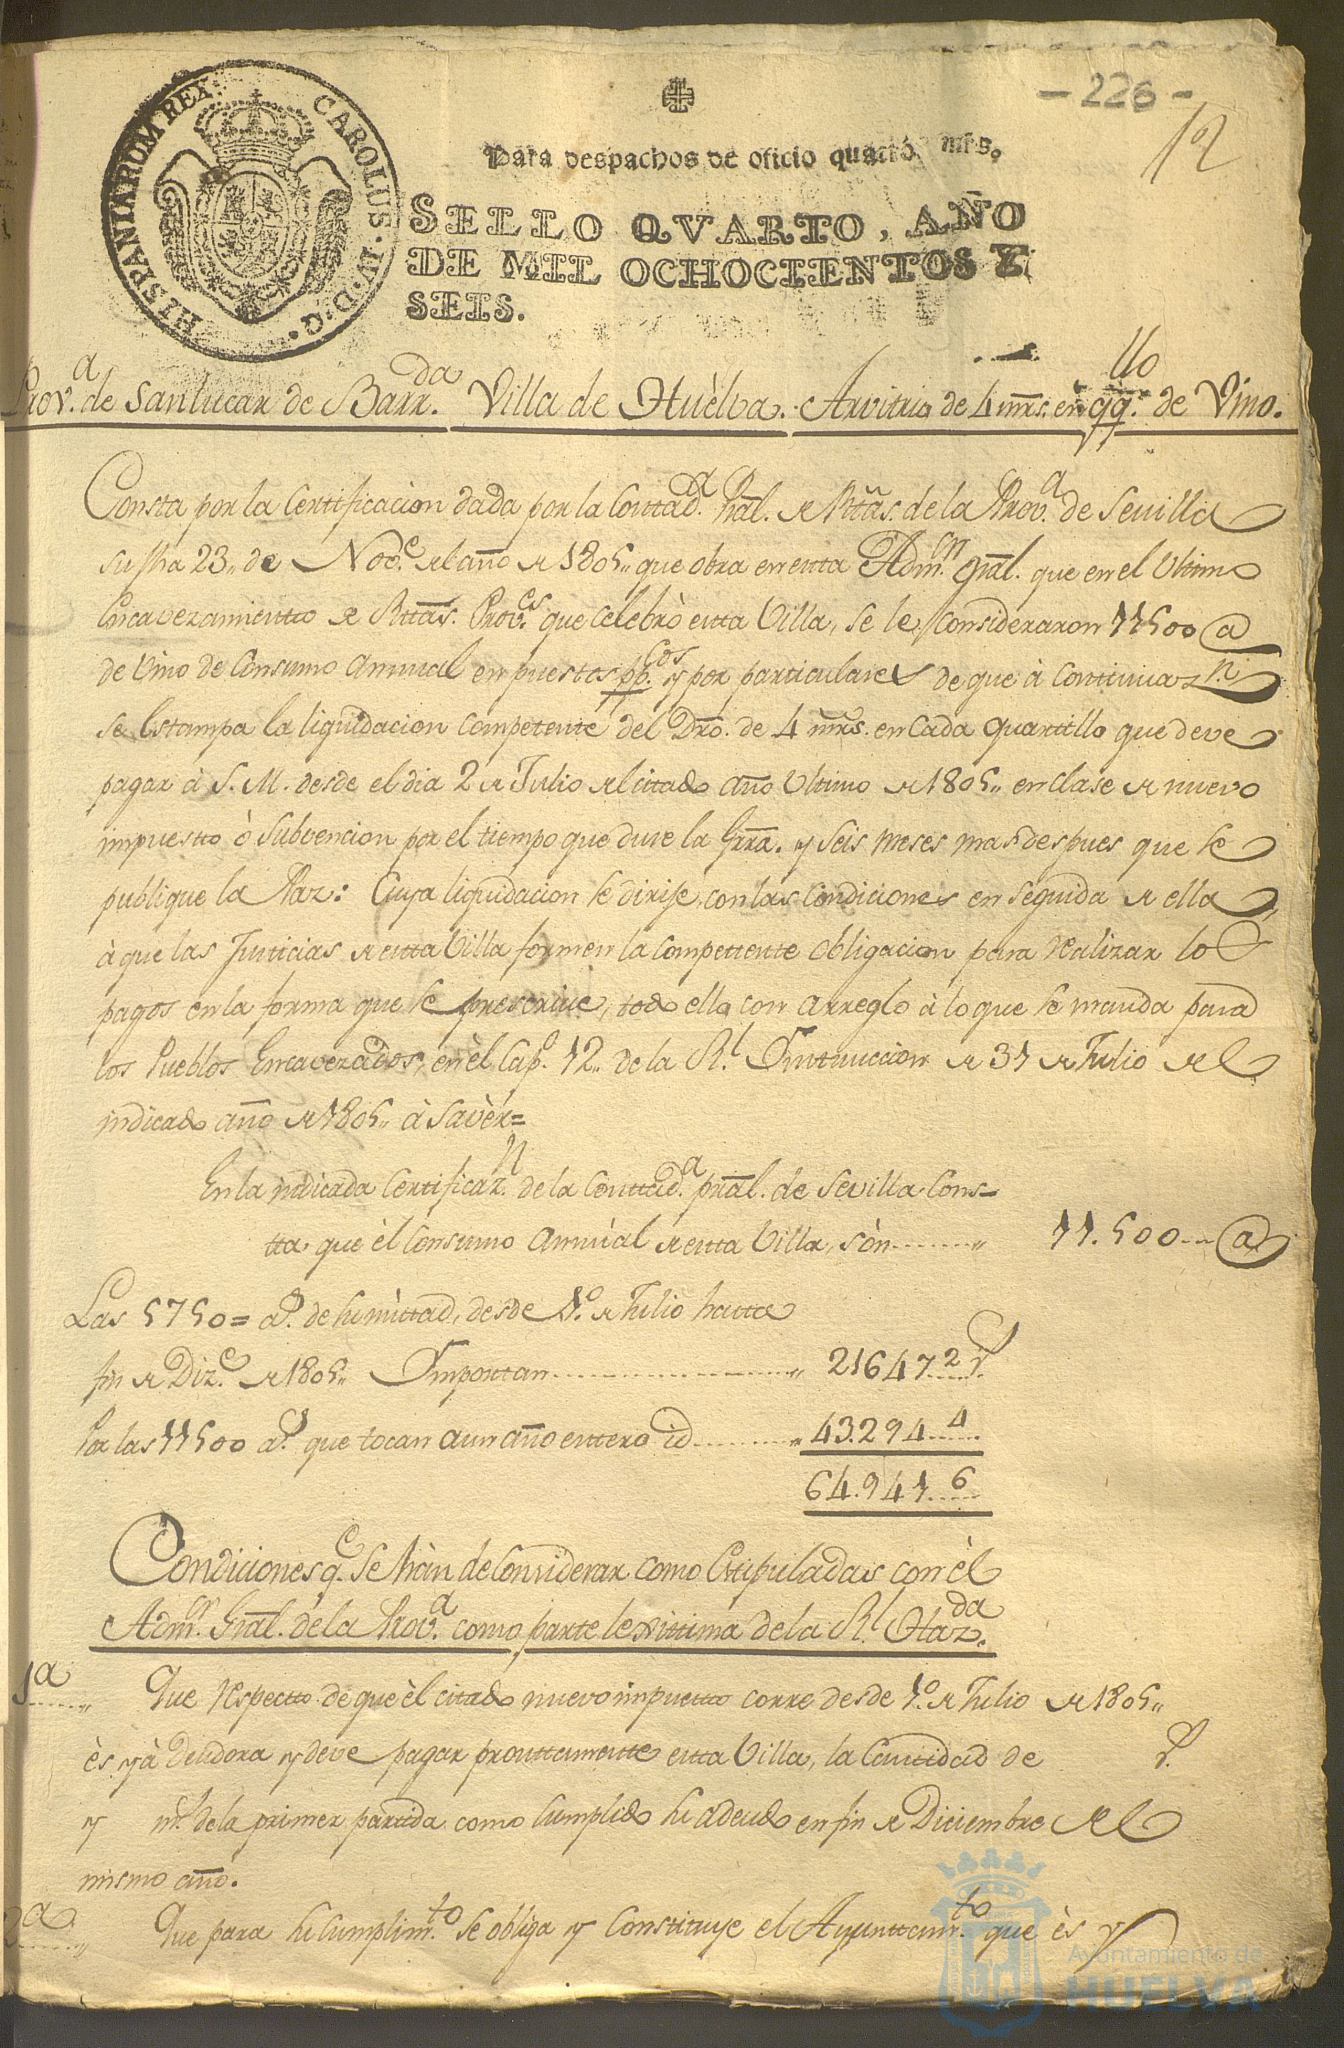 - 226 -
12
HISPANIARUM REX. CAROLUS. IV. D. G.
Para despachos de oficio quatro mrs.
SELLO QVARTO, AÑO
DE MIL OCHOCIENTOS Y
SEIS.
Prov.a de Sanlucar de Barr.da Villa de Huèlva. Arvitrio de 4 mrs. en qq.llo de Vino.
Consta por la Certificacion dada por la Contad.a Pral. de Rtas. de la Prov.a de Sevilla
su fha 23,, de Nov.e del año de 1805,, que obra en esta Adm.on gral. que en el Ultimo
Encavezamiento de Rttas. Prov.es que celebrò esta Villa, se le consideraron 11500 @
de Vino de Consumo Annual en puestos pp.cos y por particulares de que à continuaz.n
se Estampa la liquidacion competente del Dro. de 4 mrs. en cada quartillo que deve
pagar à S. M. desde el dia 2 de Julio del citado año Ultimo de 1805,, en clase de nuevo
impuesto ò Subvencion por el tiempo que dure la Grra. y Seis meses mas despues que se
publique la Paz: Cuya liquidacion se dirije, con las Condiciones en seguida de ella,,
à que las Justicias de esta Villa formen la Competente Obligacion para realizar los
pagos en la forma que se prescrive, todo ello con arreglo à lo que se manda para
los Pueblos Encavezados, en èl Cap.o 12,, de la R.l Instruccion de 31 de Julio del
indicado año de 1805,, à Savèr=
En la indicada Certificaz.n de la Contad.a pral. de Sevilla Cons-
ta que èl Consumo Annùal de esta Villa, sòn ........ ,, 11.500 ... @
Las 5750= a.s de su mittad, desde 1.o de Julio hasta
fin de Diz.e de 1805,, Importan ........ ,, 21647..2 r.s
Por las 11500 a.s que tocan a un año entero id ........ ,, 43.294..4
64.941..6
Condiciones q.e Se hàn de Considerar como Estipuladas con èl
Adm.or Gral. de la Prov.a como parte lexittima de la R.l Haz.da
1.a ,, Que respecto de que èl citado nuevo impuesto corre desde 1.o de Julio de 1805,,
ès yà Deudora y deve pagar prontamente esta Villa, la Cantidad de r.s
y m.s de la primer partida como Cumplido su adeudo en fin de Diciembre del
mismo año.
2.a ,, Que para su Cumplim.to Se obliga y Constituye el Ayuntam.to que ès y
Ayuntamiento de
HUELVA